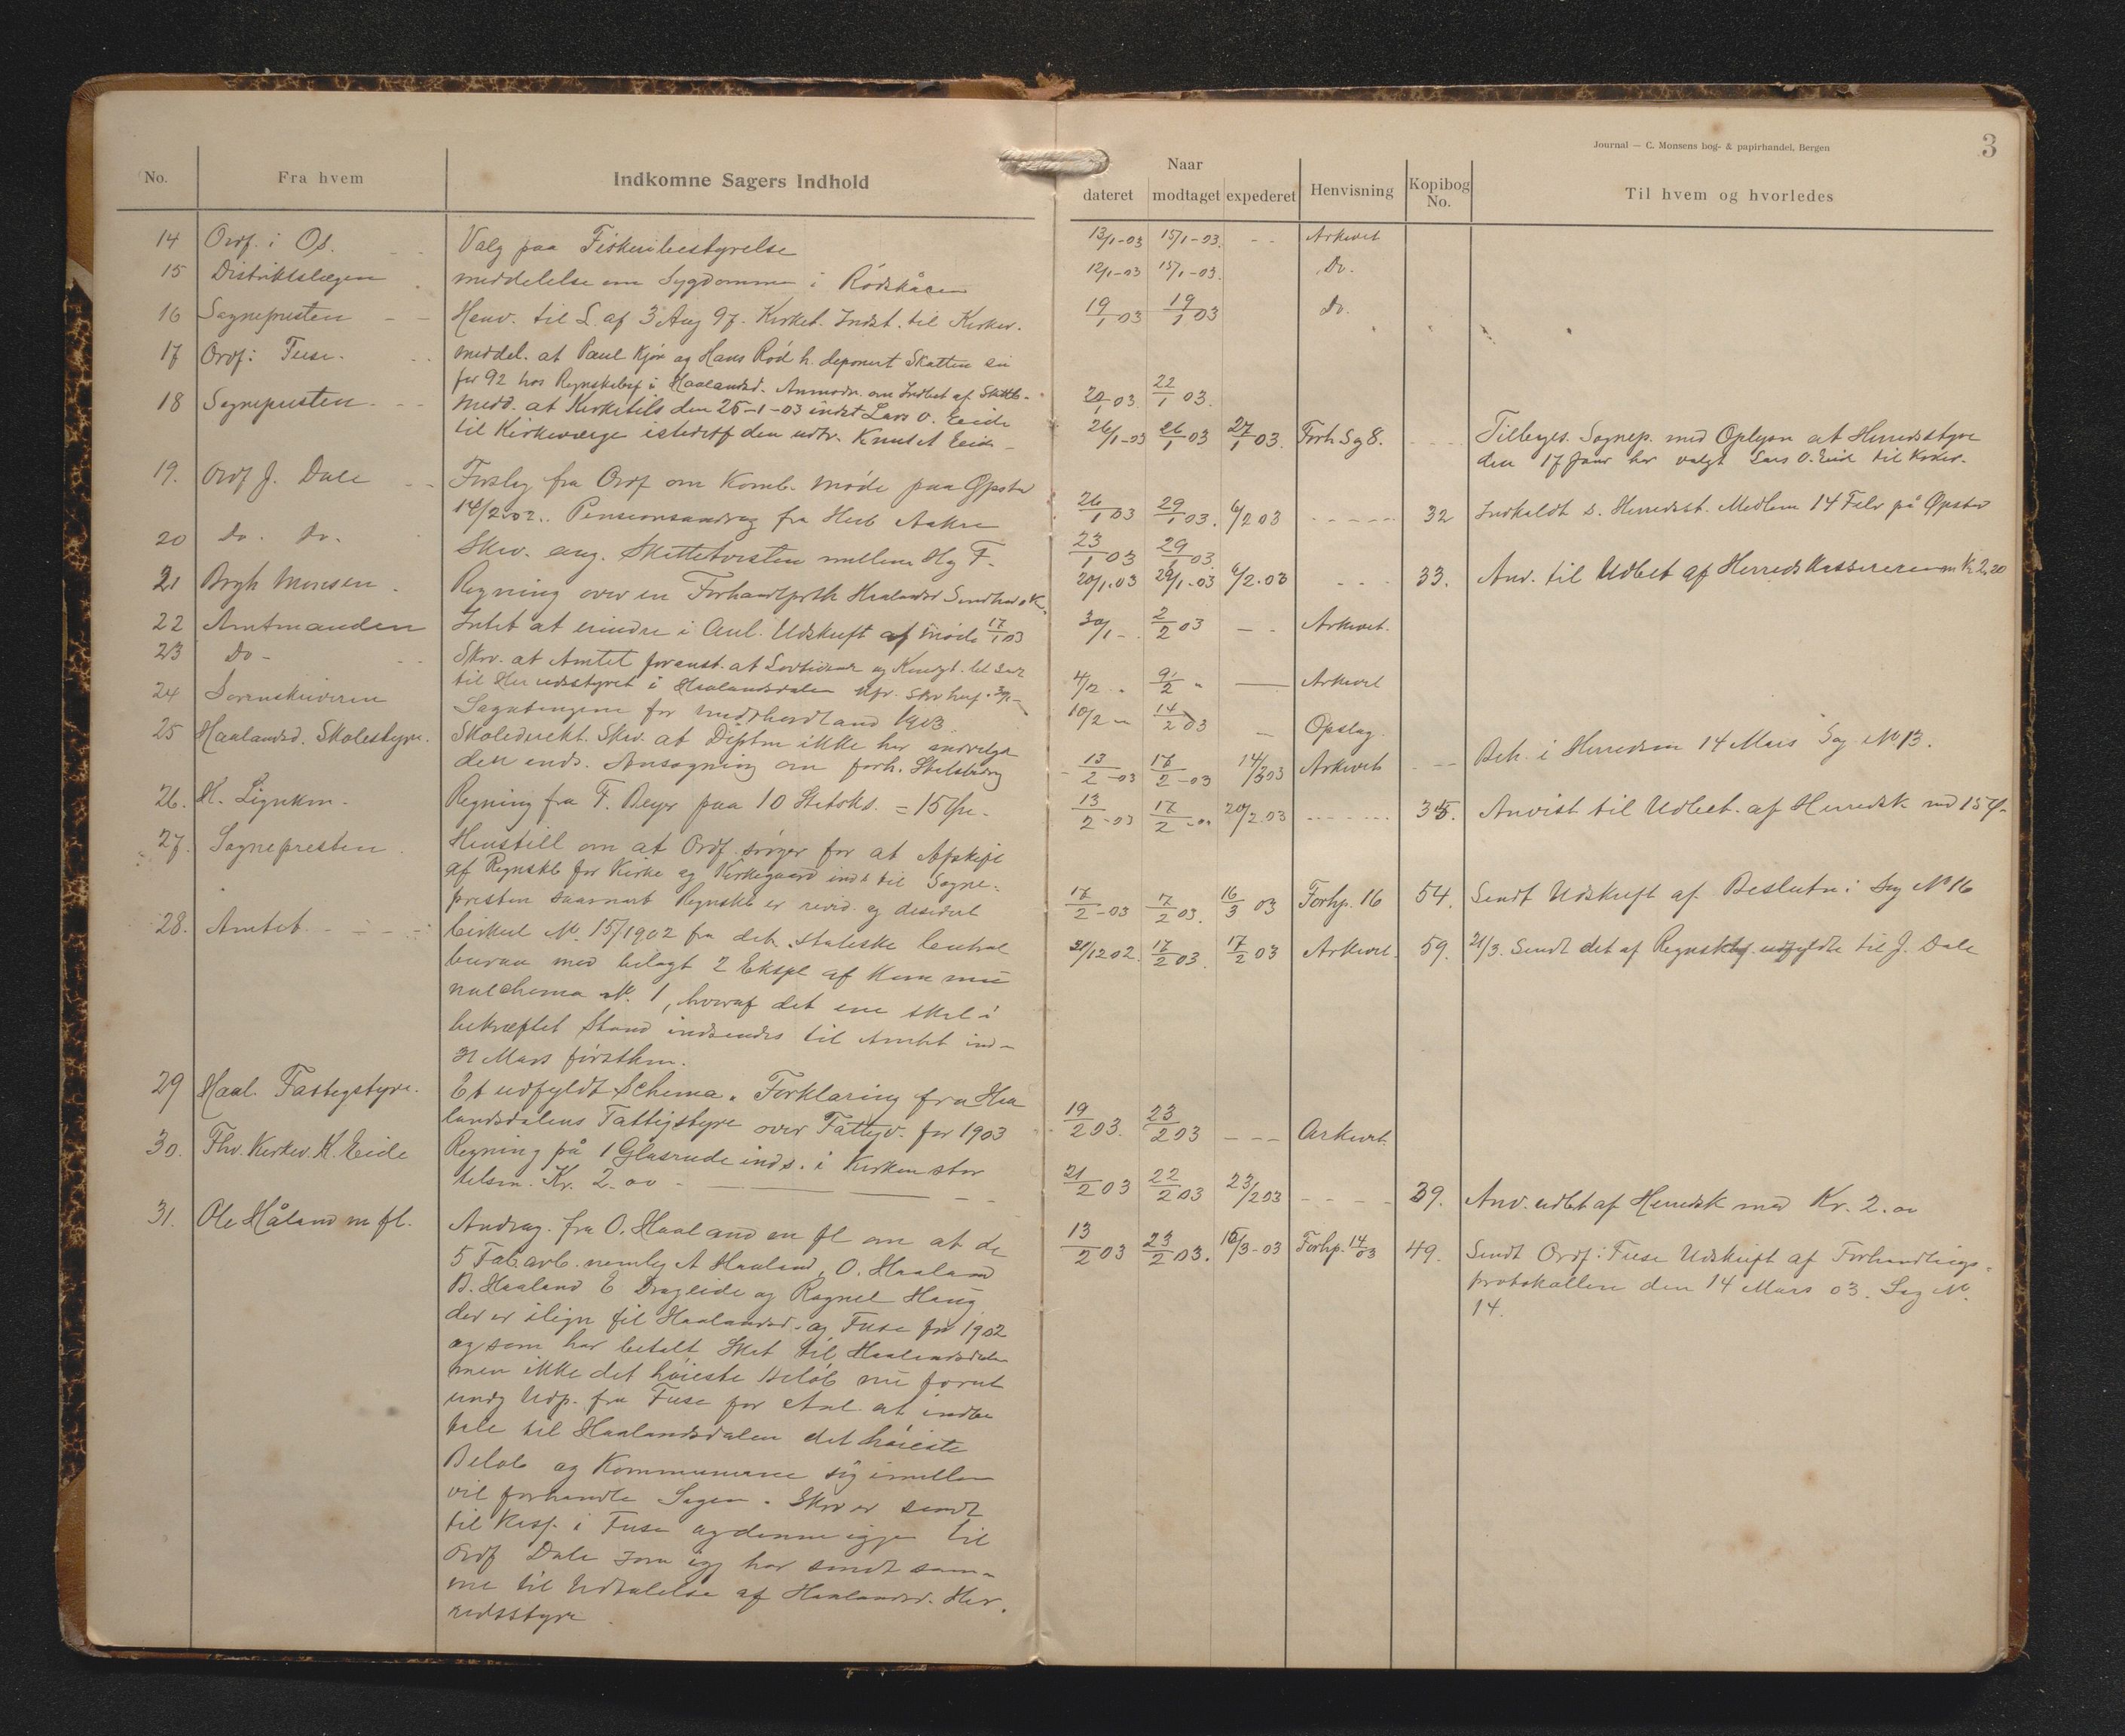 Journal — C. Monsens bog- & papirhandel, Bergen
3
No.
Fra hvem
Indkomne Sagers Indhold
Naar
dateret modtaget expederet
Henvisning
Kopibog No.
Til hvem og hvorledes
14 Ordf. i Os. Valg paa Fiskeribestyrelse 13/1-03 15/1-03. Arkivet
15 Distriktslægen meddelelse om Sygdomme i 12/1-03 15/1-03. Do.
16 Sognepresten Henv. til L. af 3 Aug 97. Kirket. Indst. til Kirkev. 19/1 03 19/1 03 Do.
17 Ordf: Fuse. meddel. at Paul Kjør og Hans Rød h. deponert Skatten sin
for 92 hos i Haalandsd. Anmodn. om Indbet af 22/1 03.
18 Sognepresten. medd. at Kirketils den 25-1-03 indst Lars O. Eide 26/1-03 26/1 03 27/1 03. Forh Sg 8. Sognep. med Oplysn at Herredsstyre
til Kirkeværge istedetf den udtr. Knut Eide den 17 Janr har valgt Lars O. Eide til Kirkev.
19. Ordf J. Dale Forslag fra Ordf om Komb. møde paa 26/1 03 29/1 03. 6/2 03 32 Indkaldt s. Herredsst. Medlem 14 Febr på
Pensionsandrag fra Aakre
20 Do. Do. Skr. ang. mellem H og F. 23/1 03 29/1 03.
21 Monsen. Regning over en Haalandsd 20/1.03 29/1-03 6/2.03 33. Anv. til Udbet af Herredskassereren m Kr 2.20
22 Amtmanden Intet at erindre i Anl. Udskrift af møde 17/1 03 30/1 - 2/2 03 Arkivet.
23 Do - Skr. at Amtet foranst. at Lovtidende og 4/2 " 9/2 " Arkivet
til Herredsstyret i Haalandsdalen
24 Sorenskriveren Sagatingene for midthordland 1903. 10/2 " 14/2 03 Opslag.
25 Haalandsd. Skolestyre. Skoledirekt. Skr. at Deptm ikke har indvilget 13/2-03 17/2-03 14/3 03 Arkivet Beh. i Herredsm 14 Mars Sag No 13.
den inds. Ansøgning om forh.
26. H. Lignkm. Regning fra F. Beyer paa 10 = 15 Øre. 13/2-03 17/2 - 20/2.03 35. Anvist til Udbet. af Herredsk med 15 Ø.
27. Sognepresten Henstill om at Ordf. sørger for at Afskrift
af Regnskb for Kirke og Kirkegaard inds til Sogne-
presten saasnart Regnskb er revid. og desidert 17/2-03 17/2 03. 16/3 03 Forhp. 16 54. Sendt Udskrift af Beslutn i Sag No 16
28. Amtet Cirkul No. 15/1902 fra det statistiske Central 31/12 02. 17/2 03. 17/2 03 Arkivet. 59. 21/3. Sendt det af Regnskbf. udfyldte til J. Dale
bureau med bilagt 2 Ekspl af Kommu
nalschema No. 1, hvoraf det ene skal i
bekræftet Stand indsendes til Amtet ind-
31 Mars førstkm.
29 Haal. Fattigstyre. Et udfyldt Schema. Forklaring fra Haa
landsdalens Fattigstyre over Fattigv. for 1903 19/2 03. 23/2 03 Arkivet.
30. Fhv. Kirkev. K. Eide Regning på 1 Glasrude inds. i Kirken stor
Kr. 2.00 21/2 03 22/2 03 23/2 03 39. Anv. udbt af Herredsk med Kr. 2.00
31. Ole Håland m fl. Andrag. fra O. Haaland m fl om at de 13/2 03 23/2 03. 16/3-03 Forhp. 14/03 49. Sendt Ordf: Fuse Udskrift af Forhandlings-
5 Fab.arb. nemlig A Haaland, O. Haaland protokollen den 14 Mars 03. Sag No.
B. Haaland E Drageide og Ragnel Haug 14.
der er ilign til Haalandsd. og Fuse for 1902
og som har betalt Skat til Haalandsdalen
men ikke det høieste Beløb nu forut
undg Udp. fra Fuse for Anl. at indbe
tale til Haalandsdalen det høieste
Beløb og Kommunerne sig imellem
vil forhandle Sagen. Skr er sendt
til Kasf. i Fuse og denne igjen til
Ordf Dale som igj har sendt sam-
me til Udtalelse af Haalandsd. Her-
redsstyre